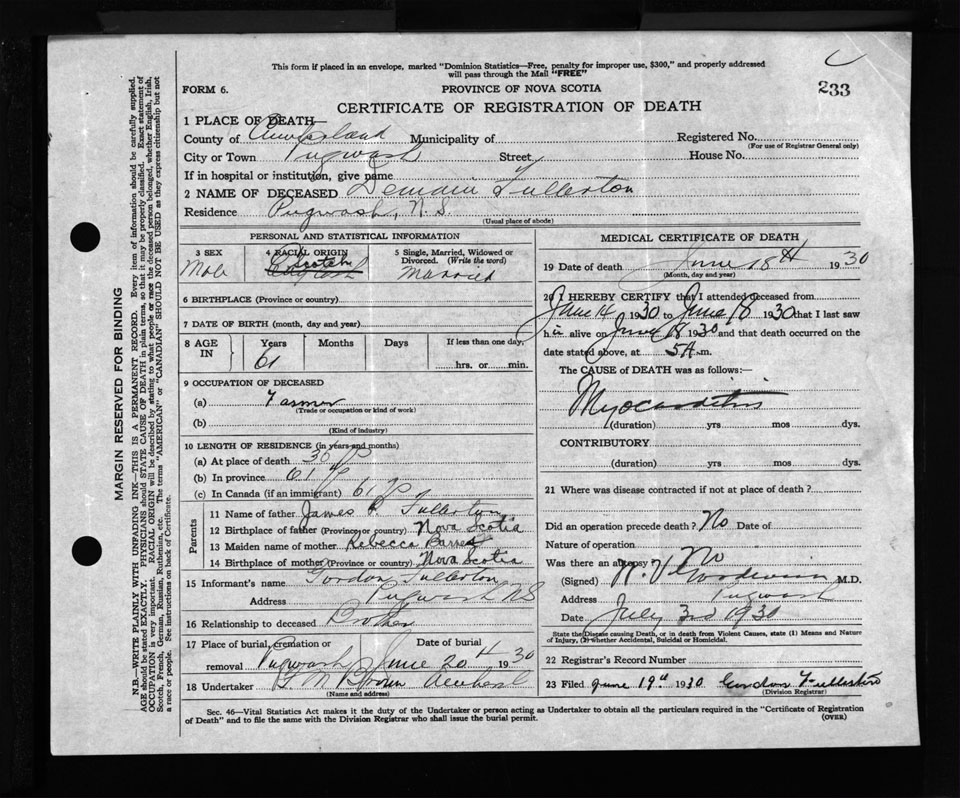 This form if placed in an envelope, marked "Dominion Statistics—Free, penalty for improper use, $300," and properly addressed
will pass through the Mail "FREE"
233
FORM 6.
PROVINCE OF NOVA SCOTIA
CERTIFICATE OF REGISTRATION OF DEATH
1 PLACE OF DEATH—
County of Cumberland Municipality of
Registered No.
(For use of Registrar General only)
City or Town Pugwash Street House No.
If in hospital or institution, give name
2 NAME OF DECEASED Fullerton
Residence Pugwash, N. S.
(Usual place of abode)
PERSONAL AND STATISTICAL INFORMATION
3 SEX
Male
4 RACIAL ORIGIN
Scotch
English
5 Single, Married, Widowed or
Divorced. (Write the word)
Married
6 BIRTHPLACE (Province or country)
7 DATE OF BIRTH (month, day and year)
8 AGE IN
Years Months Days
61
If less than one day,
hrs. or min.
9 OCCUPATION OF DECEASED
(a) Farmer
(Trade or occupation or kind of work)
(b)
(Kind of industry)
10 LENGTH OF RESIDENCE (in years and months)
(a) At place of death 30
(b) In province 61
(c) In Canada (if an immigrant) 61
Parents
11 Name of father James Fullerton
12 Birthplace of father (Province or country) Nova Scotia
13 Maiden name of mother Rebecca
14 Birthplace of mother (Province or country) Nova Scotia
15 Informant's name Gordon Fullerton
Address Pugwash NS
16 Relationship to deceased Brother
17 Place of burial, cremation or
removal Pugwash
Date of burial
June 20th 1930
18 Undertaker Brown Amherst
(Name and address)
MEDICAL CERTIFICATE OF DEATH
19 Date of death June 18th 1930
(Month, day and year)
20 I HEREBY CERTIFY that I attended deceased from
June 14 1930 to June 18 1930 that I last saw
him alive on June 18 1930 and that death occurred on the
date stated above, at 5 A.m.
The CAUSE of DEATH was as follows:—
Myocarditis
(duration) yrs mos dys.
CONTRIBUTORY
(duration) yrs mos dys.
21 Where was disease contracted if not at place of death?
Did an operation precede death? No Date of
Nature of operation
Was there an autopsy? No
(Signed) M.D.
Address Pugwash
Date July 3rd 1930
State the Disease causing Death, or in death from Violent Causes, state (1) Means and Nature
of Injury, (2) whether Accidental, Suicidal or Homicidal.
22 Registrar's Record Number
23 Filed June 19th 1930 Gordon Fullerton
(Division Registrar)
Sec. 46—Vital Statistics Act makes it the duty of the Undertaker or person acting as Undertaker to obtain all the particulars required in the "Certificate of Registration
of Death" and to file the same with the Division Registrar who shall issue the burial permit.
(OVER)
MARGIN RESERVED FOR BINDING
N.B.—WRITE PLAINLY WITH UNFADING INK—THIS IS A PERMANENT RECORD. Every item of information should be carefully supplied.
AGE should be stated EXACTLY. PHYSICIANS should STATE CAUSE OF DEATH in plain terms, so that it may be properly classified. Exact statement of
OCCUPATION is very important. RACIAL ORIGIN will be described by stating to what people or race the deceased person belonged, whether English, Irish,
Scotch, French, German, Russian, Ruthenian, etc. The terms "AMERICAN" or "CANADIAN" SHOULD NOT BE USED as they express citizenship but not
a race or people. See instructions on back of Certificate.